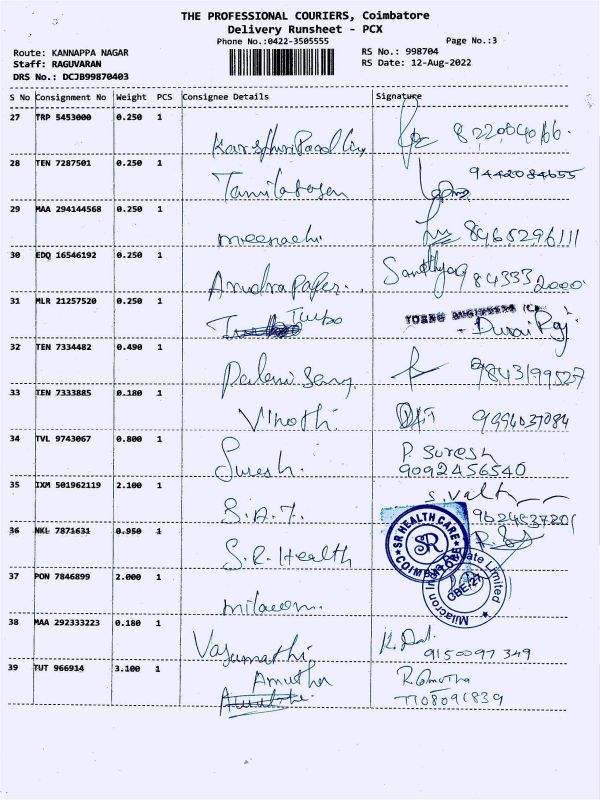 THE PROFESSIONAL COURIERS, Coimbatore
Delivery Runsheet - PCX
Phone No.:0422-3505555
Page No.:3
Route: KANNAPPA NAGAR
RS No.: 998704
Staff: RAGUVARAN
RS Date: 12-Aug-2022
DRS No.: DCJB99870403
S No Consignment No Weight PCS Consignee Details Signature
27 TRP 5453000 0.250 1
28 TEN 7287501 0.250 1
Tamilarasan 9442084655
29 MAA 294144568 0.250 1
meenachi 8465296111
30 EDQ 16546192 0.250 1
Andhra Paper.. Sandhya 84333 2000
31 MLR 21257520 0.250 1
Turbo Durai Raj
32 TEN 7334482 0.490 1
9843199527
33 TEN 7333885 0.180 1
Vinoth. 9994037084
34 TVL 9743067 0.800 1
Suresh. P. Suresh
9092456540
35 IXM 501962119 2.100 1
S.A.T.
36 NKL 7871631 0.950 1
S.R. Health
SR HEALTH CARE
SR
37 PON 7846899 2.000 1
milacom.
CBE-21
Private Limited
38 MAA 292333223 0.180 1
Vasumathi
9150097 349
39 TUT 966914 3.100 1
Amutha R. Amutha
7708091839